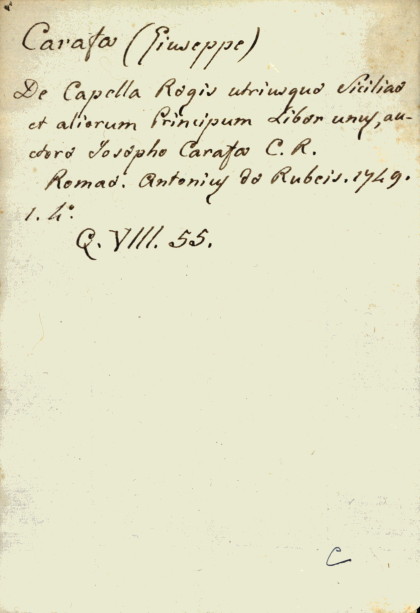 Carafa (Giuseppe)
De Capella Regis utriusque Siciliae
et aliorum Principum Liber unus, au-
ctore Josepho Carafa C. R.
Romae. Antonius de Rubeis. 1749.
1. 4°.
Q. VIII. 55.
C